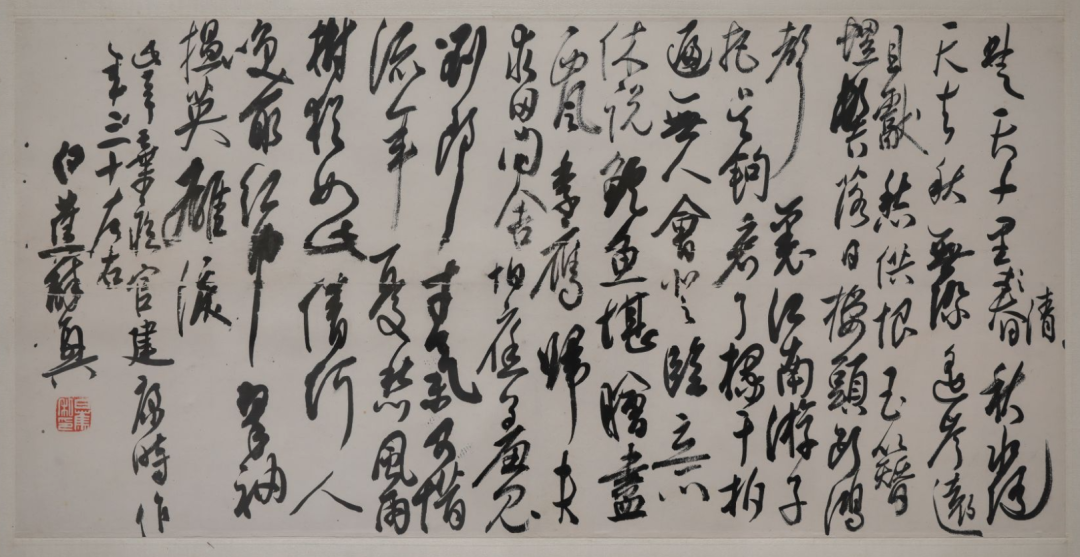 楚天千里春清秋水隨
天去秋無際遙岑遠
目獻愁供恨玉簪
螺髻落日樓頭斷鴻
聲裏江南游子
把吳鉤看了欄干拍
遍無人會登臨意
休說鱸魚堪膾盡
西風季鷹歸未
求田問舍怕應羞見
劉郎才氣可惜
流年憂愁風雨
樹猶如此倩何人
喚取紅巾翠袖
揾英雄淚
此辛棄疾官建康時作
年三十左右
白蕉醉興